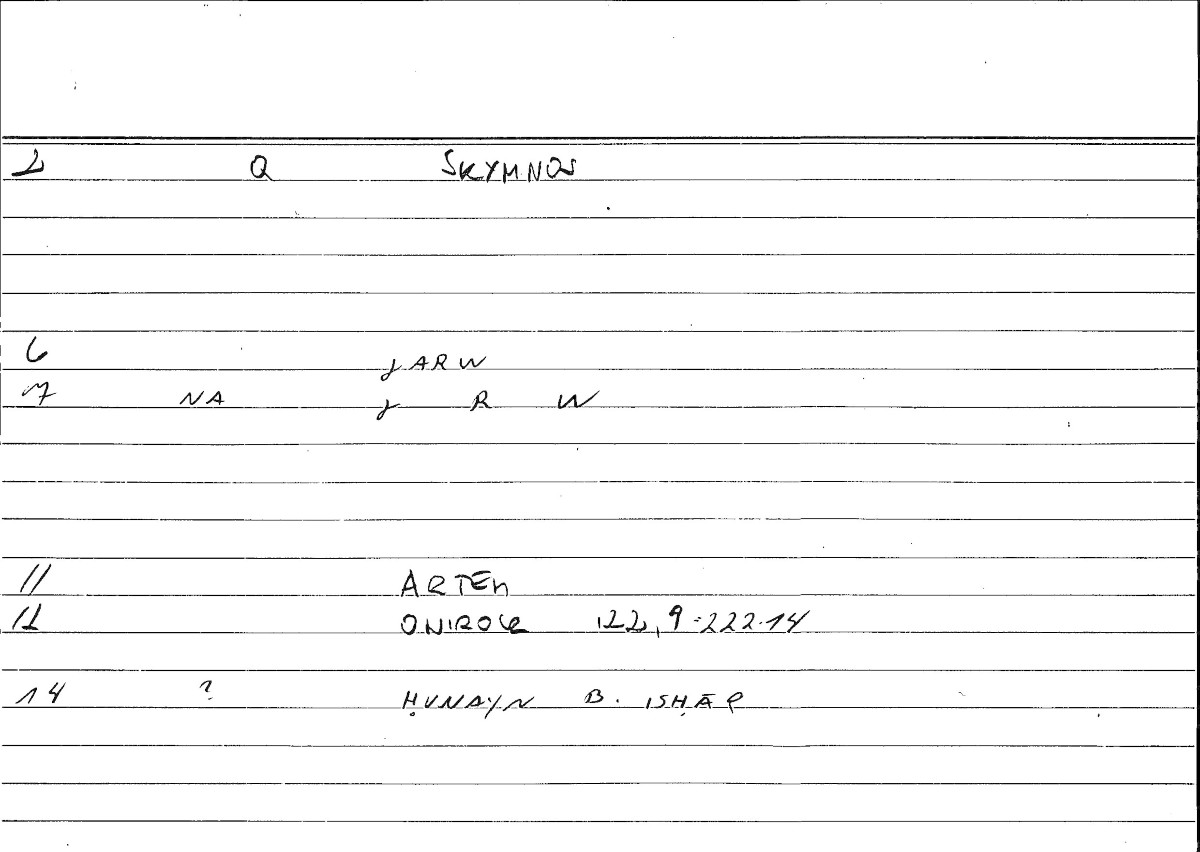 2 Q SKYMNOS
6 ARW
7 NA R W
11 ARTEM
12 ONIROCR 122,9-222.14
14 ? ḤUNAYN B. ISḤĀQ